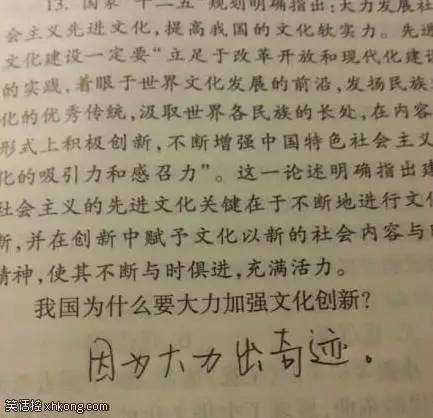 13. 国家“十二五”规划明确指出:大力发展社
会主义先进文化,提高我国的文化软实力。先进
文化建设一定要“立足于改革开放和现代化建设
的实践,着眼于世界文化发展的前沿,发扬民族文
化的优秀传统,汲取世界各民族的长处,在内容
形式上积极创新,不断增强中国特色社会主义
化的吸引力和感召力”。这一论述明确指出建
社会主义的先进文化关键在于不断地进行文化
新,并在创新中赋予文化以新的社会内容与时
精神,使其不断与时俱进,充满活力。
我国为什么要大力加强文化创新?
因为大力出奇迹。
笑话控 xhkong.com